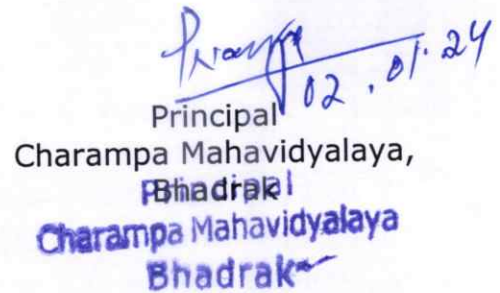 02.01.24
Principal
Charampa Mahavidyalaya,
Bhadrak
Principal
Charampa Mahavidyalaya
Bhadrak